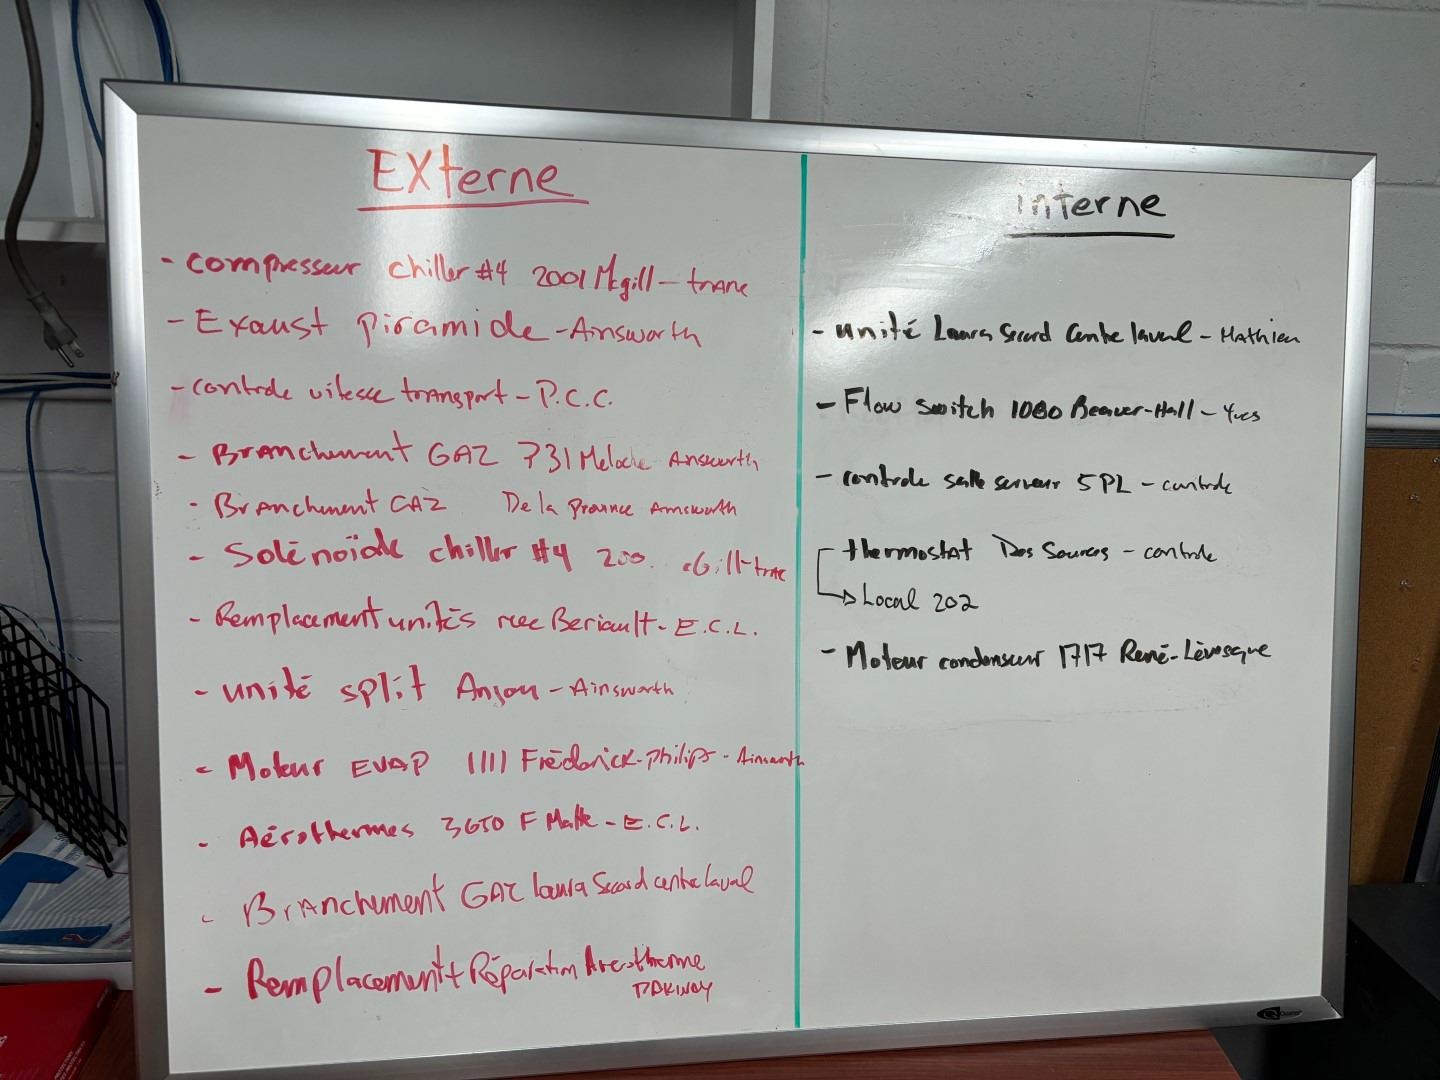 EXterne
- compresseur chiller #4 2001 Mcgill - trane
- Exaust piramide - Ainsworth
- controle vitesse transport - P.C.C.
- Branchement GAZ 731 Meloche Answorth
- Branchement GAZ De la province Amsworth
- Solénoïde chiller #4 200 Gill - trne
- Remplacement unités Beriault - E.C.L.
- unité split Anjou - Ainsworth
- Moteur EVAP 1111 Fréderick-philips - Ainsworth
- Aérothermes 3650 F Matte - E.C.L.
- Branchement GAZ Laura Secord centre laval
- Remplacement + Réparation Aerotherme
interne
- unité Laura Secord Centre laval - Mathieu
- Flow switch 1080 Beaver-Hall - Yves
- controle salle serveur 5PL - controle
thermostat Des Sources - controle
Local 202
- Moteur condenseur 1717 René-Lévesque